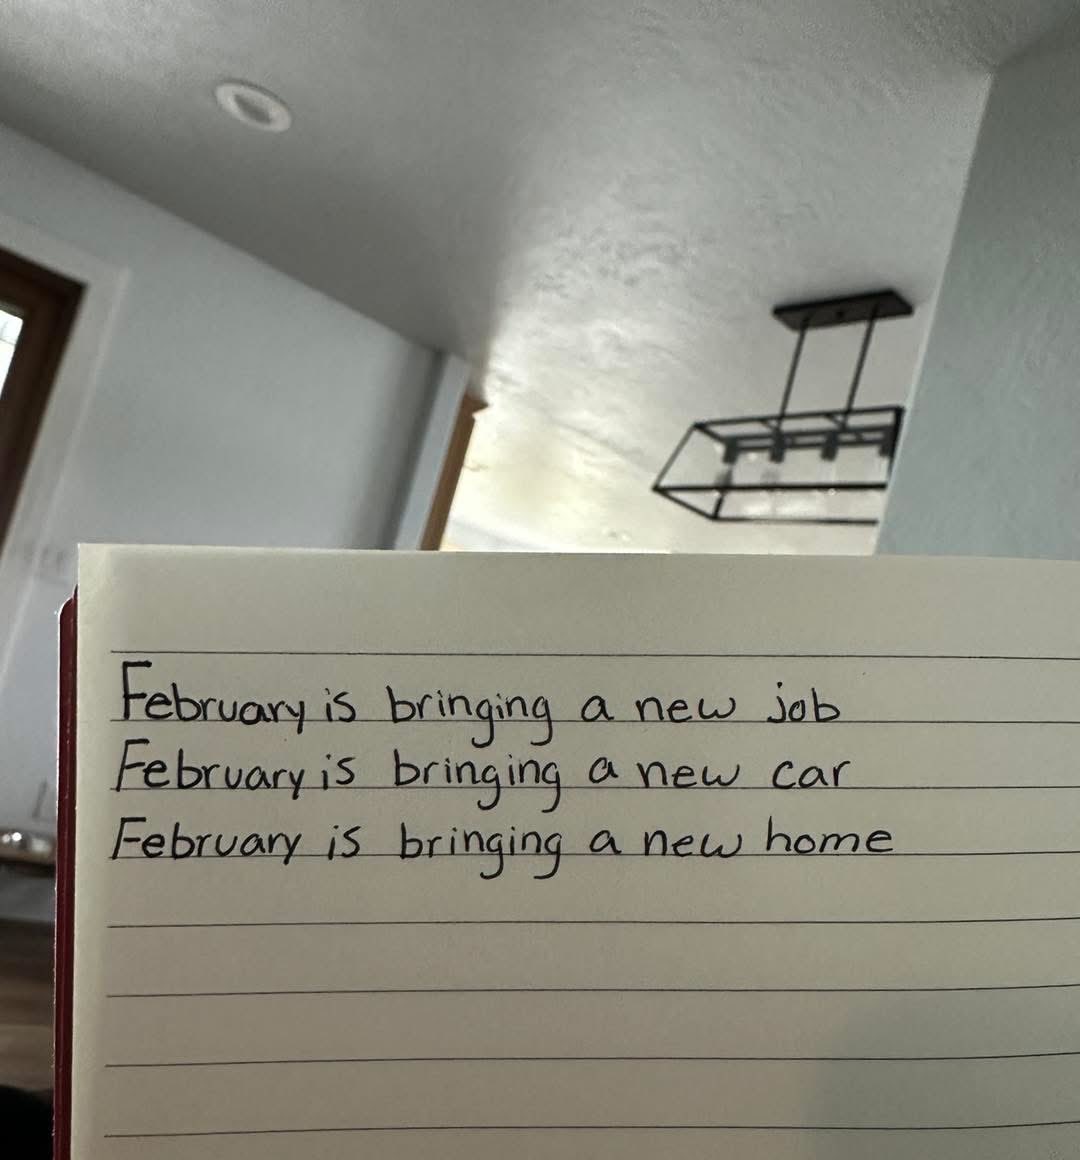 February is bringing a new job
February is bringing a new car
February is bringing a new home